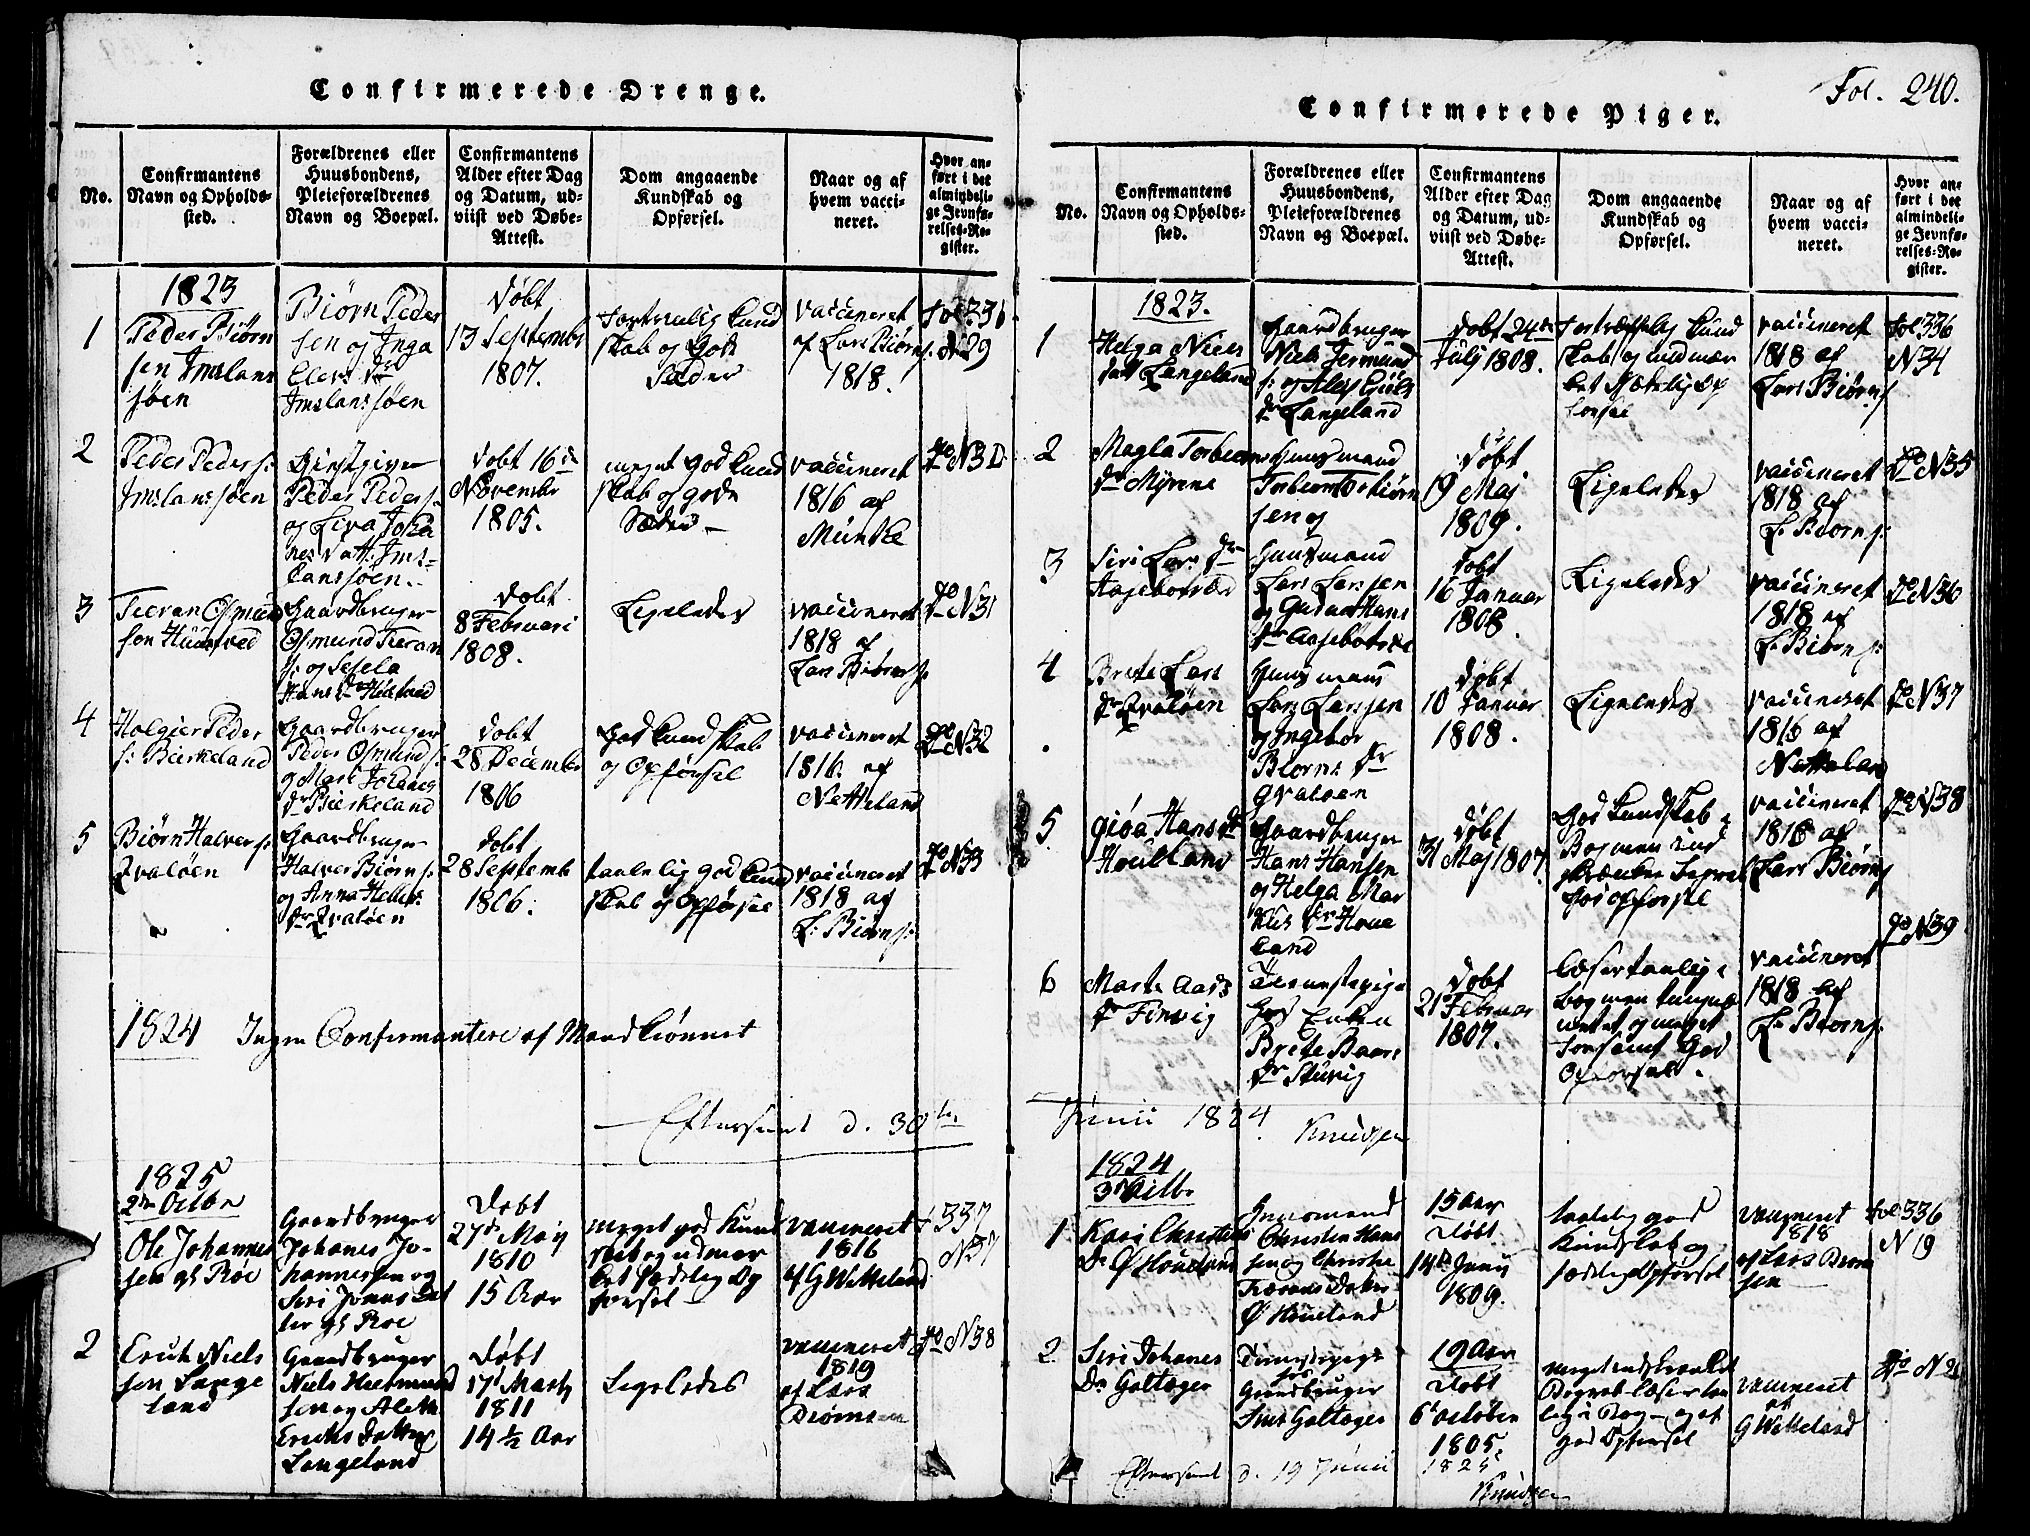 Confirmerede Drenge.
No.
Confirmantens
Navn og Opholds-
sted.
Forældrenes eller
Huusbondens,
Pleieforældrenes
Navn og Boepæl.
Confirmantens
Alder efter Dag
og Datum, ud-
viist ved Døbe-
Attest.
Dom angaaende
Kundskab og
Opførsel.
Naar og af
hvem vacci-
neret.
Hvor an-
ført i det
almindeli-
ge Jevnfø-
relses-Re-
gister.
1823
1
Peder Biørn
sen Imslans
søen
Biørn Peder
sen og Inga
Elers Dr
Imslanssøen
Døbt
13 Septembr
1807.
kund
skab og gode
Sæder
vaccineret
af Lars Biørns:
1818.
Fol: 336
N 29
2
Peder Peders:
Imslanssøen
Giestgiver
Peder Peders:
og Liva Joha
nes Datt: Ims-
lanssøen.
Døbt 16de
Novembr
1805.
meget god kund
skab og gode
Sæder
vaccineret
1816 af
Munke
do N 30
3
Tieran Osmund
sen
Gaardbruger
Osmund Tieran
s: og Sesela
Hans Dr
Døbt
8 Februari
1808.
Ligeledes
vaccineret
1818 af
Lars Biørns:
do N 31
4
Holgier Peder
s: Bierkeland
Gaardbruger
Peder Osmunds:
og Mari Johanes
Dr Bierkeland
Døbt
28 December
1806
God kundskab
og Opførsel
vaccineret
1816 af
Netteland
do N 32
5
Biørn Halvers:
Qvaløen
Gaardbruger
Halver Biørns:
og Anna Helles:
Dr Qvaløen
Døbt
28 Septemb
1806.
taalelig god kund
skab og Opførsel
vaccineret
1818 af
L: Biørns:
do N 33
1824 Ingen Confirmantere af Mandkiønnet
Efterseet d. 30te
1825
2den Octbr
1
Ole Johannes
sen gl Røe
Gaardbruger
Johanes Jo-
hannessen og
Siri Jonas Dat
ter gl Roe
Døbt
27de Maÿ
1810
15 Aar
meget god Kund
skab og udmær
ket sædelig Op
førsel
vaccineret
1816
af G Wetteland
f 337
N 37
2
Erich Niels
sen Lange
land
Gaardbruger
Niels
sen og Aleth
Erichs Datter
Langeland
Døbt
17 Marty
1811
14 1/2 Aar
Ligeledes
vaccineret
1819
af Lars
Biørnsen
do N 38
Fol. 240.
Confirmerede Piger.
No.
Confirmantens
Navn og Opholds-
sted.
Forældrenes eller
Huusbondens,
Pleieforældrenes
Navn og Boepæl.
Confirmantens
Alder efter Dag
og Datum, ud-
viist ved Døbe-
Attest.
Dom angaaende
Kundskab og
Opførsel.
Naar og af
hvem vacci-
neret.
Hvor an-
ført i det
almindeli-
ge Jevnfø-
relses-Re-
gister.
1823.
1
Helga Niels
Datt Langeland
Gaardbruger
Niels Jermund
s: og
Dr Langeland
Døbt 24de
Julj 1808.
Fortræffelig kund
skab og udmær
ket Sædelig Op
førsel
vaccineret
1818 af
Lars Biørns
Fol 336
N 34
2
Magla Torbiorns
Dr Mÿrene
Huusmand
Torbiorn Torbiørn
sen og
Døbt
19 Maj
1809.
Ligeledes
vaccineret
1818 af
L: Biorns:
do N 35
3
Siri Lars Dr
Huusmand
Lars Larssen
og Hans
Dr
Døbt
16 Januar
1808
Ligeledes
vaccineret
1818 af
L: Biørns:
do N 36
4
Brete Lars
Dr Qvaløen
Huusmand
Lars Larssen
og Ingebor
Biorns Dr
Qvaløen
Døbt
10 Januar
1808.
Ligeledes
vaccineret
1816 af
Netteland
do N 37
5
Giøa Hans Dr
Houkland
Gaardbruger
Hans Hansen
og Helga Mar
kus Dr Houe
land
Døbt
31 Maj 1807.
God kundskab i
Bogmen ind
skrænket
for opførsel
vaccineret
1818 af
Lars Biørns
do N 38
6
Marte Aars
Dr Finvig
Tienestepige
hos Enken
Brete Baars
Dr Stuvig
Døbt
21 Februar
1807.
Læser taalelig i
bog men
og meget
God
Opførsel.
vaccineret
1818 af
L: Biorns:
do N 39
Junii 1824. Knudsen
1824
3d Octbr
1
Kari Christens
Dr Ø Houeland
Huusmand
Christen Hans
sen og Christie
Ø Houeland
15 Aar
Døbt
14de Junii
1809.
taalelig god
Kundskab og
sædelig Opførsel
vaccineret
1818
af Lars Biørn
sen
fol 336
N 19
2
Siri Johanes
Dr Galtager
Tienistepige
hos
Gaardbruger
Galtager
19 Aar
Døbt
6t October
1805.
meget indskrænket
Begreb læser taa
lelig i Bog og af
god Opførsel
vaccineret
af
G Wetteland
do N 20
Efterseet d. 19 Junii 1825
Knudsen